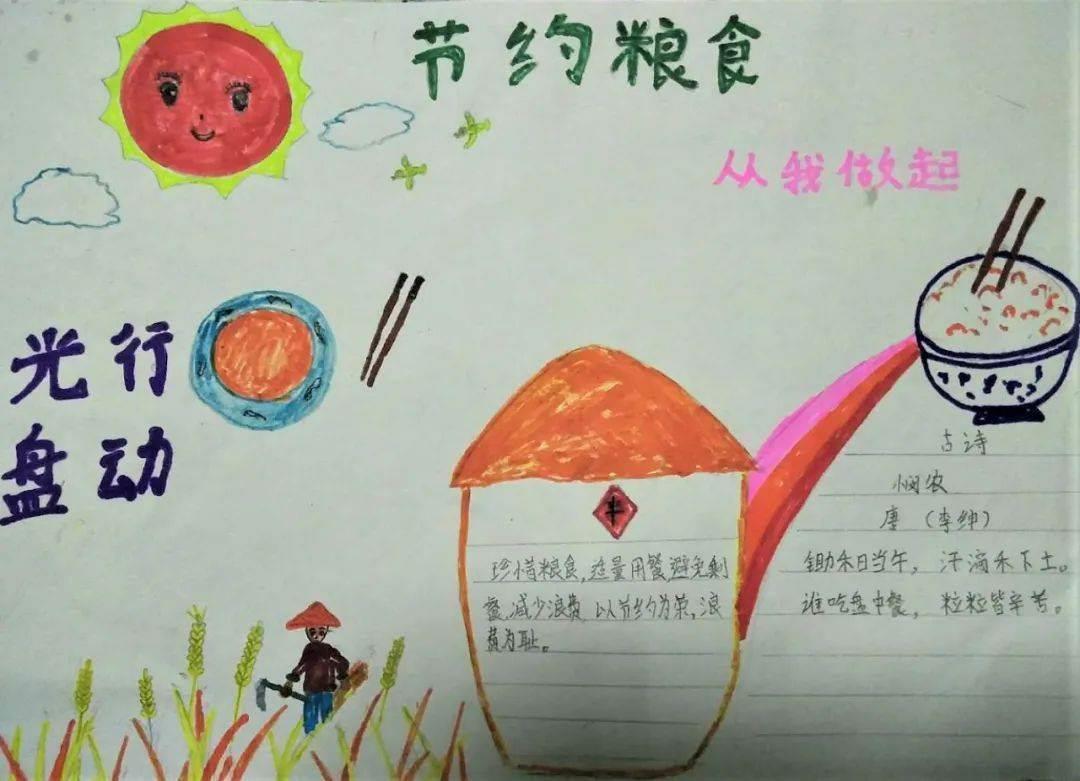 节约粮食
从我做起
光盘
行动
丰
珍惜粮食,适量用餐避免剩
餐,减少浪费 以节约为荣,浪
费为耻。
古诗
悯农
唐 (李绅)
锄禾日当午，汗滴禾下土。
谁吃盘中餐，粒粒皆辛苦。